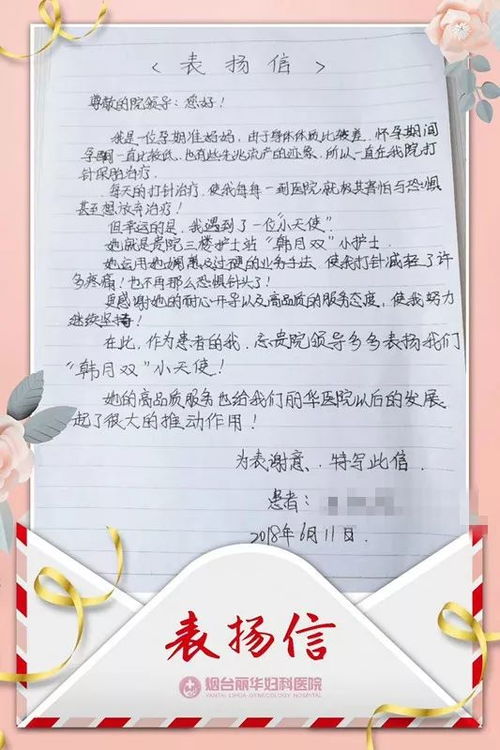 〈表扬信〉
尊敬的院领导：您好！
我是一位孕期准妈妈，由于身体体质比较差，怀孕期间
孕酮一直比较低，也有些先兆流产的迹象，所以一直在我院打
针保胎治疗。
每天的打针治疗，使我每每一到医院就极其害怕与恐惧
甚至想放弃治疗！
但幸运的是，我遇到了一位“小天使”。
她就是贵院三楼护士站“韩月双”小护士
她运用她娴熟及过硬的业务手法，使余打针减轻了许
多疼痛！也不再那么恐惧针头了！
更感谢她的耐心开导以及高品质的服务态度，使我努力
继续坚持！
在此，作为患者的我，忘贵院领导多多表扬我们
“韩月双”小天使！
她的高品质服务也给我们丽华医院以后的发展
起了很大的推动作用！
为表谢意、特写此信．
患者：
2018年6月11日．
表扬信
烟台丽华妇科医院
YANTAI LIHUA GYNECOLOGY HOSPITAL